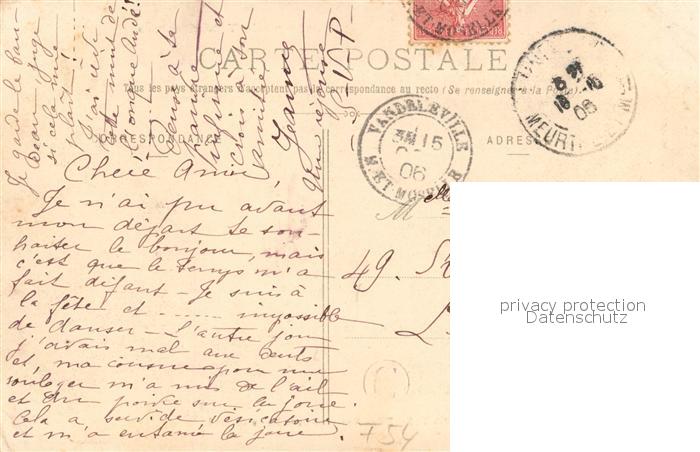 CARTE POSTALE
Tous les pays étrangers n'acceptent pas la correspondance au recto (Se renseigner à la Poste)
CORRESPONDANCE
ADRESSE
ET MOSELLE
VANDELEVILLE
15
06
M. ET MOSELLE
06
MEURT
Chère Amie,
Je n'ai pu avant
mon départ te sou-
haiter le bonjour, mais
c'est que le temps m'a
fait défaut - Je suis à
la fête et ...... impossible
de danser - L'autre jour
j'avais mal aux dents
et, ma cousine pour me
soulager m'a mis de l'ail
et du poivre sur la joue.
Cela a servi de vésicatoire
et m'a entamé la joue.
Je garde le
si cela me
plaît!
J'ai été
Pense à ta
crois à son
amitié
Jeanne
Une réponse
S.V.P.
Melle
49.
C
F54
privacy protection
Datenschutz